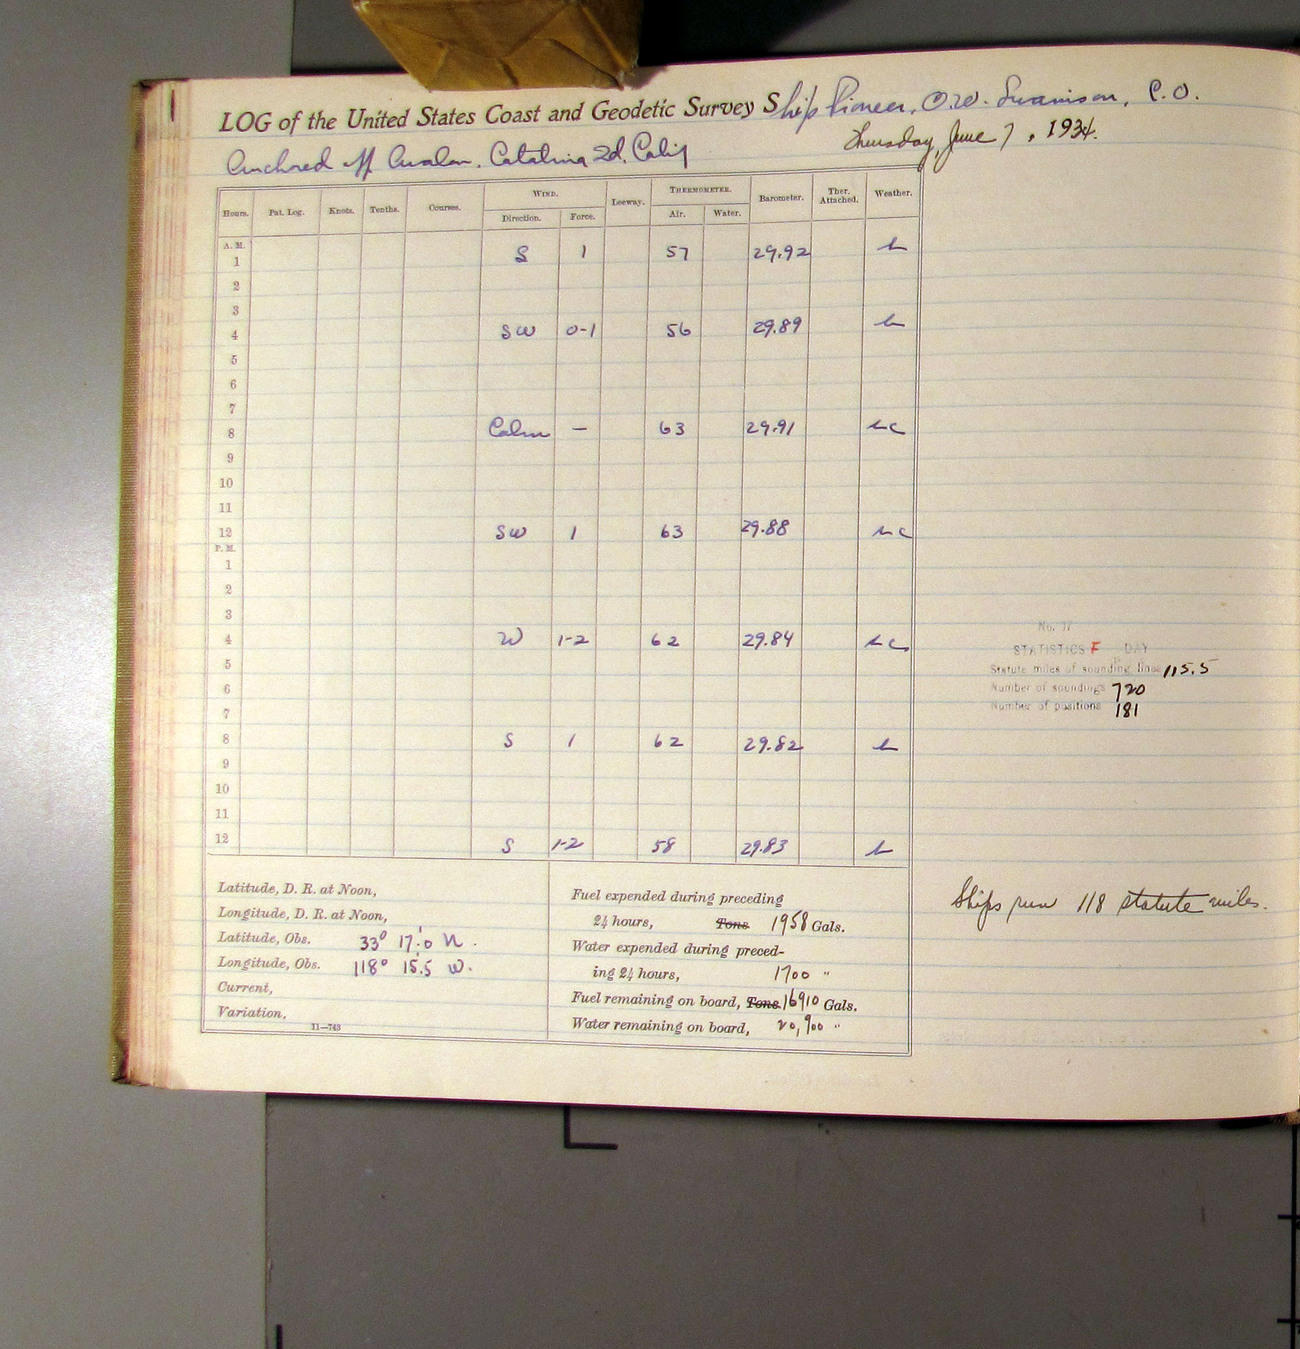 LOG of the United States Coast and Geodetic Survey Ship Pioneer, O.W. Swainson, C.O.
Anchored off Avalon, Catalina Id. Calif
Thursday, June 7, 1934.
Hours. Pat. Log. Knots. Tenths. Courses. WIND. Leeway. THERMOMETER. Barometer. Ther. Attached. Weather.
Direction. Force. Air. Water.
A. M.
1 S 1 57 29.92 b
2
3
4 SW 0-1 56 29.89 b
5
6
7
8 Calm — 63 29.91 bc
9
10
11
12 SW 1 63 29.88 bc
P. M.
1
2
3
4 W 1-2 62 29.84 bc
5
6
7
8 S 1 62 29.82 b
9
10
11
12 S 1-2 58 29.83 b
No. 17
STATISTICS F DAY
Statute miles of sounding lines 115.5
Number of soundings 720
Number of positions 181
Ships run 118 statute miles.
Latitude, D. R. at Noon,
Longitude, D. R. at Noon,
Latitude, Obs. 33° 17.'0 N.
Longitude, Obs. 118° 15.'5 W.
Current,
Variation,
11—743
Fuel expended during preceding
24 hours, Tons 1958 Gals.
Water expended during preced-
ing 24 hours, 1700 "
Fuel remaining on board, Tons 16910 Gals.
Water remaining on board, 20,900 "